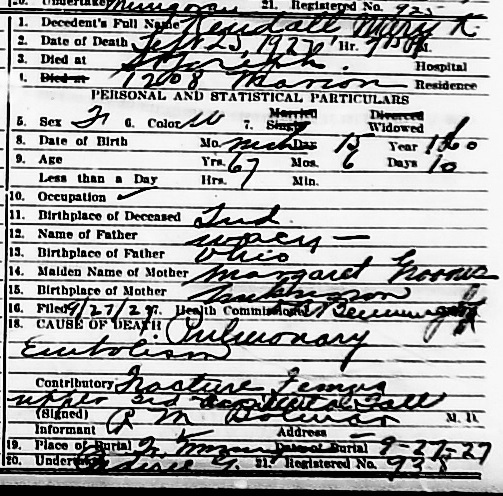 20. Undertaker 21. Registered No. 925
1. Decedent's Full Name Kendall Mary K
2. Date of Death Sept 25, 1927 Hr. M.
3. Died at St Joseph Hospital
4. Died at 1208 Marion Residence
PERSONAL AND STATISTICAL PARTICULARS
5. Sex F 6. Color W 7. Married Single Divorced Widowed
8. Date of Birth Mo. Mch Day 15 Year 1860
9. Age Yrs. 67 Mos. 6 Days 10
Less than a Day Hrs. Min.
10. Occupation ✓
11. Birthplace of Deceased Ind
12. Name of Father
13. Birthplace of Father Ohio
14. Maiden Name of Mother Margaret
15. Birthplace of Mother
16. Filed 9/27/27. Health Commissioner
18. CAUSE OF DEATH Pulmonary
Embolism
Contributory Fracture Femur
upper 3rd Accidental Fall
(Signed) R M M. D.
Informant Address —
19. Place of Burial Date of Burial 9-27-27
20. Undertaker 21. Registered No. 938